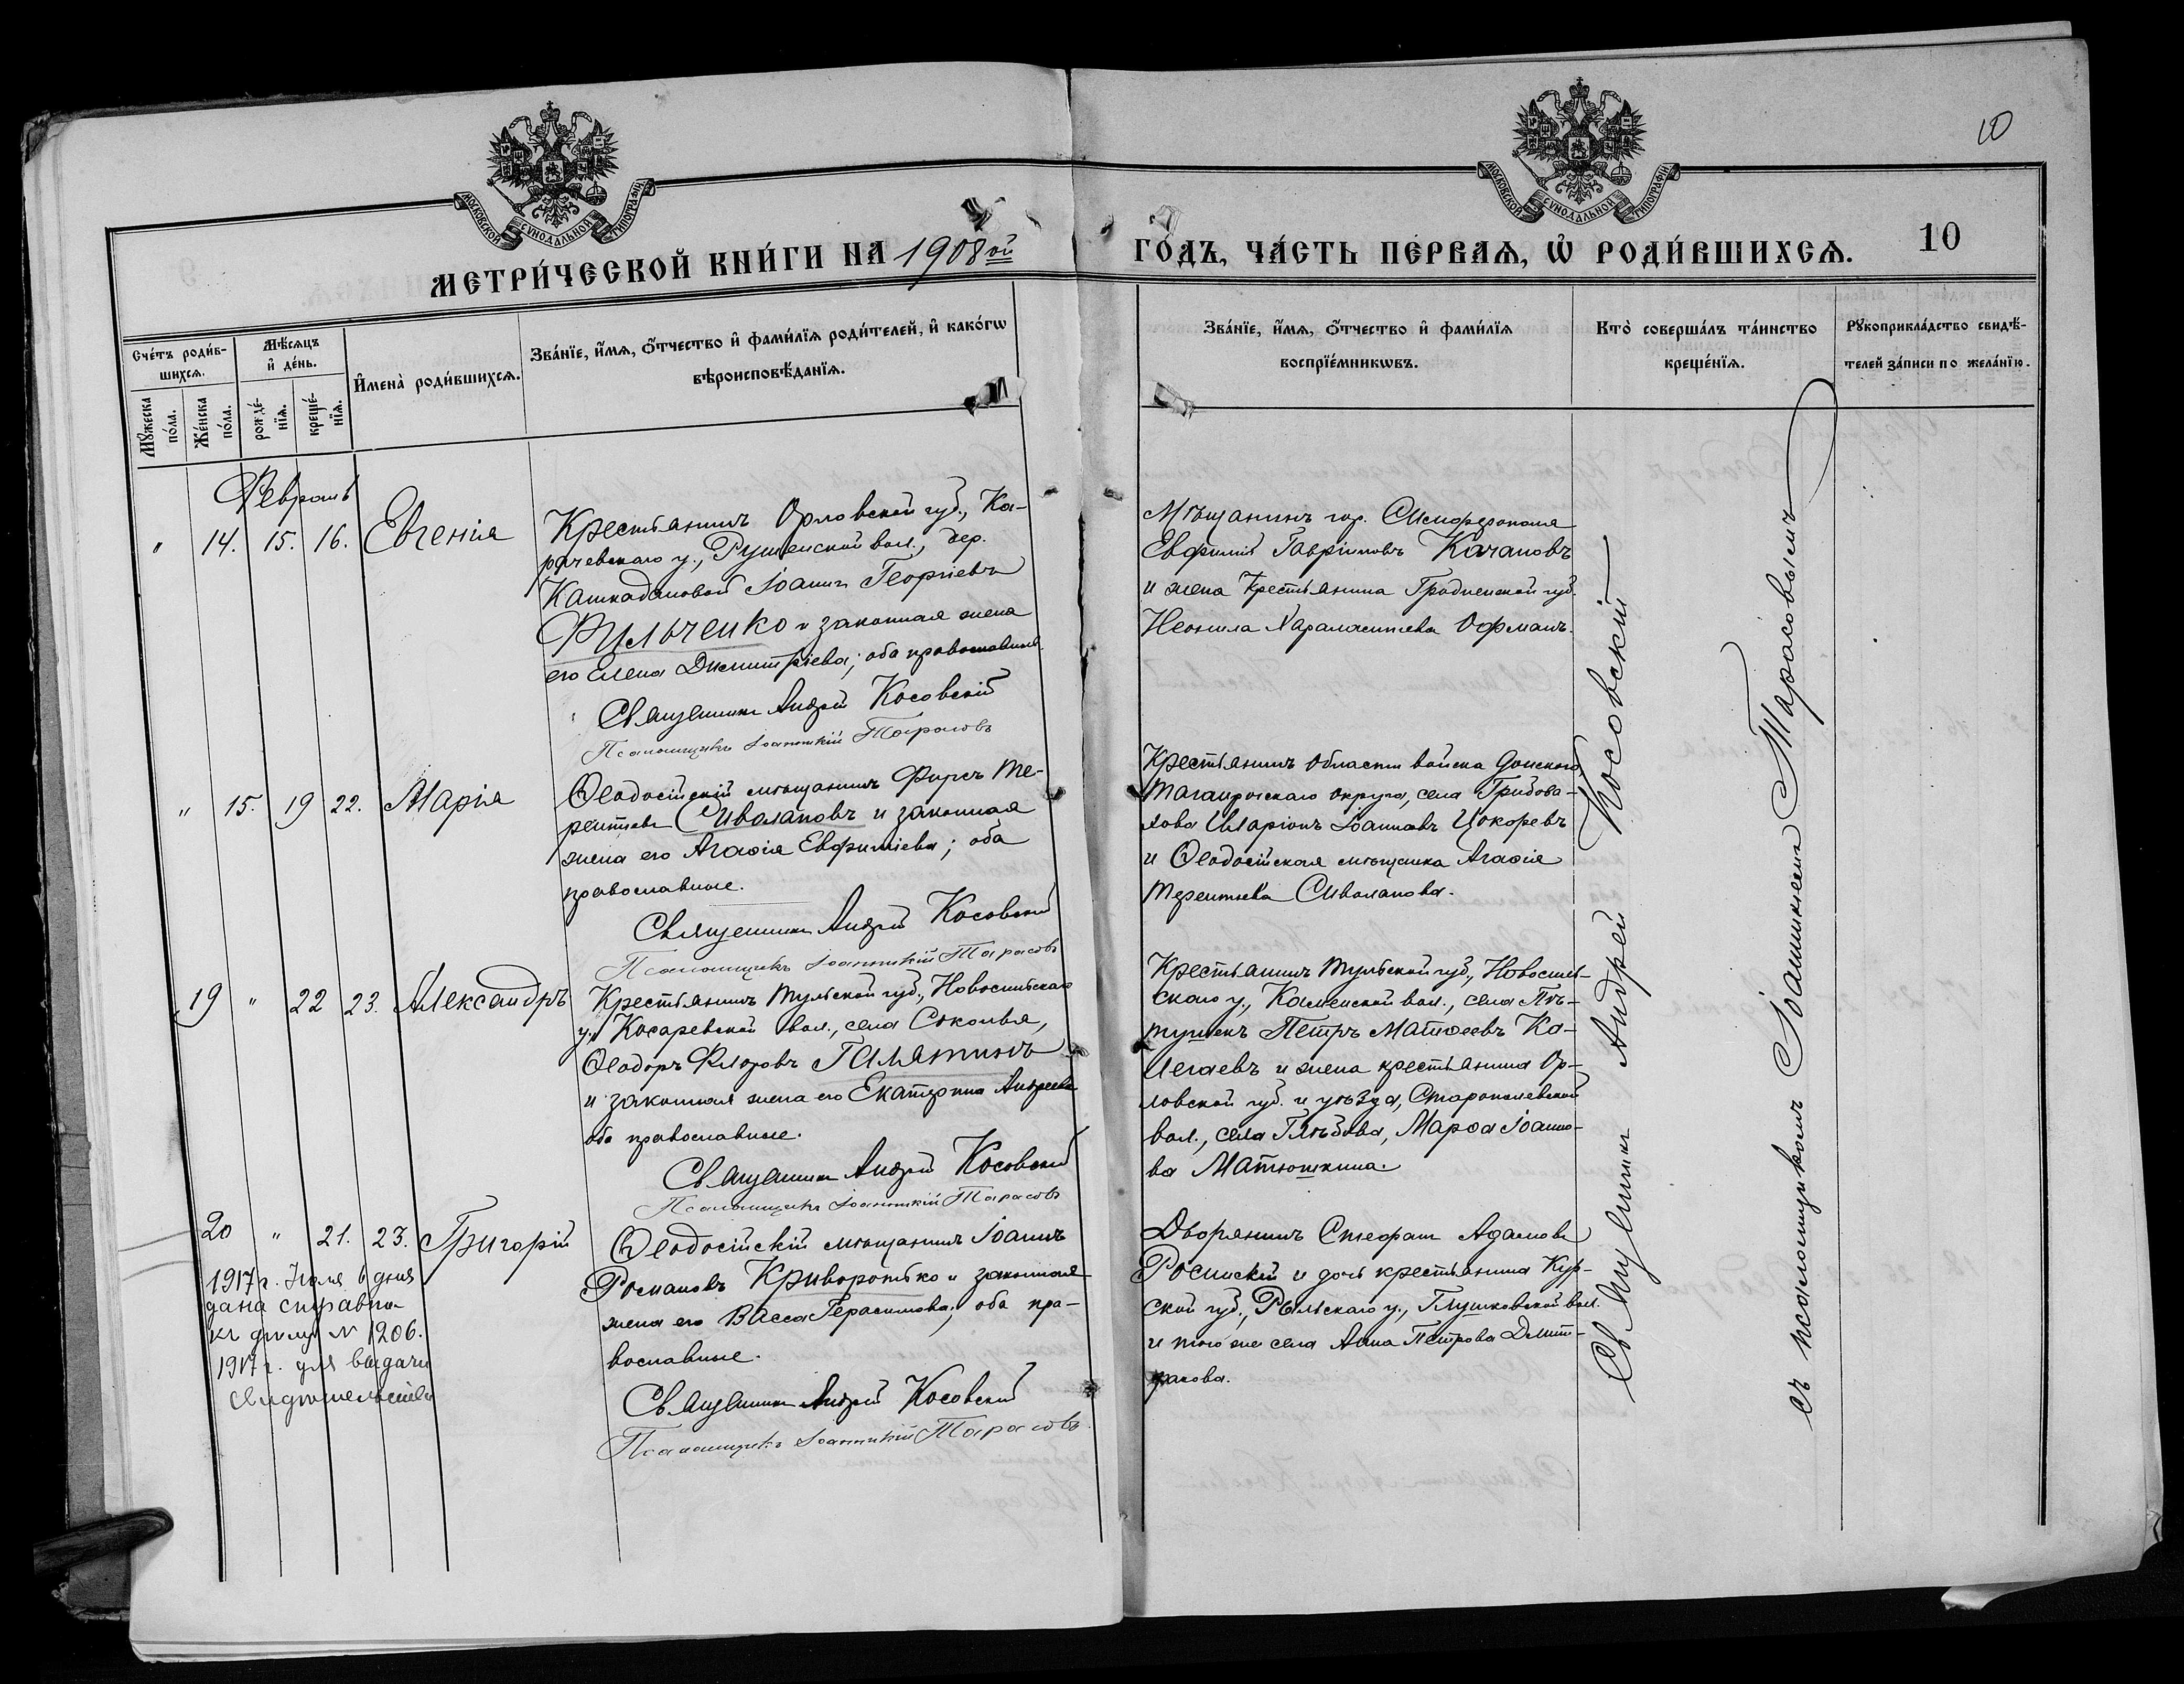 МОСКОВСКОЙ СѴНОДАЛЬНОЙ ТИПОГРАФІИ
МОСКОВСКОЙ СѴНОДАЛЬНОЙ ТИПОГРАФІИ
10
МЕТРИ́ЧЕСКОЙ КНИ́ГИ НА 1908 ой
ГО́ДЪ, ЧА́СТЬ ПЕ́РВАѦ, Ѡ҆ РОДИ́ВШИХСѦ. 10
Сче́тъ роди́в-
шихсѧ.
Мꙋ́жеска по́ла.
Же́нска по́ла.
Мѣ́сѧцъ и҆ де́нь.
рожде́-
нїѧ.
креще́-
нїѧ.
И҆мена̀ роди́вшихсѧ.
Зва́нїе, и҆́мѧ, ѻ҆́тчество и҆ фами́лїѧ роди́телей, и҆ како́гѡ
вѣроисповѣ́данїѧ.
Зва́нїе, и҆́мѧ, ѻ҆́тчество и҆ фами́лїѧ
воспрїе́мникѡвъ.
Кто̀ соверша́лъ та́инство
креще́нїѧ.
Рꙋкоприкла́дство свидѣ́-
телей за́писи по жела́нїю.
Февраль
" 14. 15. 16. Евгенія
Крестьянинъ Орловской губ., Ка-
рачевскаго у., вол., дер.
Іоаннъ Георгіевъ
Фильченко и законная жена
его Елена Димитріева; оба православные.
Священникъ Андрей Косовскій
Псаломщикъ Іоанникій Тарасовъ
Мѣщанинъ гор. Симферополя
Евфимій Гавріиловъ Качановъ
и жена крестьянина Гродненской губ.
Неонила Харалампіева Офманъ.
" 15. 19 22. Марія
Ѳеодосійскій мѣщанинъ Фирсъ Те-
рентіевъ Сиволаповъ и законная
жена его Агаѳія Евфиміева; оба
православные.
Священникъ Андрей Косовскій
Псаломщикъ Іоанникій Тарасовъ
Крестьянинъ Области войска Донского,
Таганрогскаго округа, села
Иларіонъ Іоанновъ Цокоревъ
и Ѳеодосійская мѣщанка Агаѳія
Терентіева Сиволапова.
19 " 22 23. Александръ
Крестьянинъ Тульской губ., Новосильскаго
у., Косаревской вол., села Соколья,
Ѳеодоръ Флоровъ Галятинъ
и законная жена его Екатерина Андреева
оба православные.
Священникъ Андрей Косовскій
Псаломщикъ Іоанникій Тарасовъ
Крестьянинъ Тульской губ., Новосиль-
скаго у., Каменской вол., села Пѣ-
тушекъ Петръ Матѳеевъ Ка-
легаевъ и жена крестьянина Ор-
ловской губ. и уѣзда,
вол., села Глѣбова, Марѳа Іоанно-
ва Матюшкина.
20 " 21. 23. Григорій
1917 г. Іюля 6 дня
дана справка
къ дѣлу № 1206.
1917 г. для выдачи
свидѣтельства
Ѳеодосійскій мѣщанинъ Іоаннъ
Романовъ Криворотько и законная
жена его Васса Герасимова, оба пра-
вославные.
Священникъ Андрей Косовскій
Псаломщикъ Іоанникій Тарасовъ.
Дворянинъ Стефанъ Адамовъ
Росинскій и дочь крестьянина Кур-
ской губ., Рыльскаго у., Глушковской вол.
и того же села Анна Петрова
Священникъ Андрей Косовскій
съ псаломщикомъ Іоанникіемъ Тарасовымъ